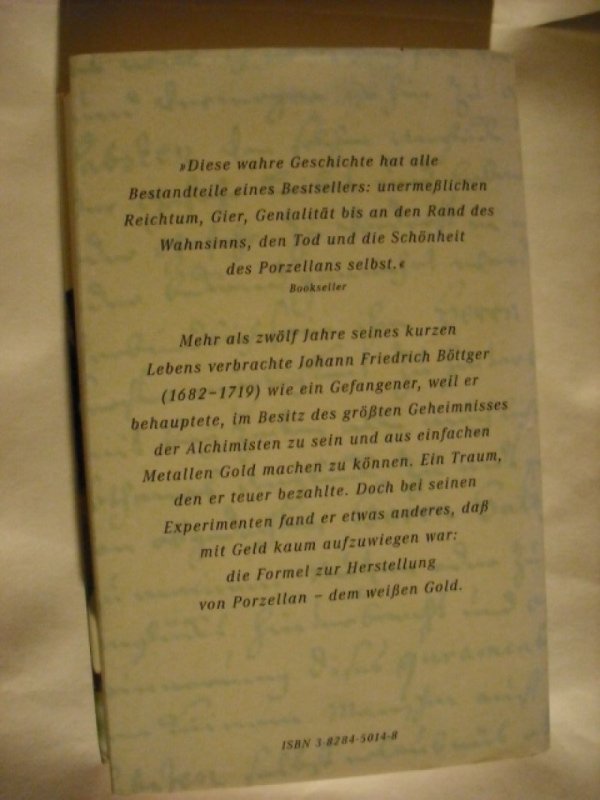 »Diese wahre Geschichte hat alle
Bestandteile eines Bestsellers: unermeßlichen
Reichtum, Gier, Genialität bis an den Rand des
Wahnsinns, den Tod und die Schönheit
des Porzellans selbst.«
Bookseller
Mehr als zwölf Jahre seines kurzen
Lebens verbrachte Johann Friedrich Böttger
(1682–1719) wie ein Gefangener, weil er
behauptete, im Besitz des größten Geheimnisses
der Alchimisten zu sein und aus einfachen
Metallen Gold machen zu können. Ein Traum,
den er teuer bezahlte. Doch bei seinen
Experimenten fand er etwas anderes, daß
mit Geld kaum aufzuwiegen war:
die Formel zur Herstellung
von Porzellan – dem weißen Gold.
ISBN 3-8284-5014-8